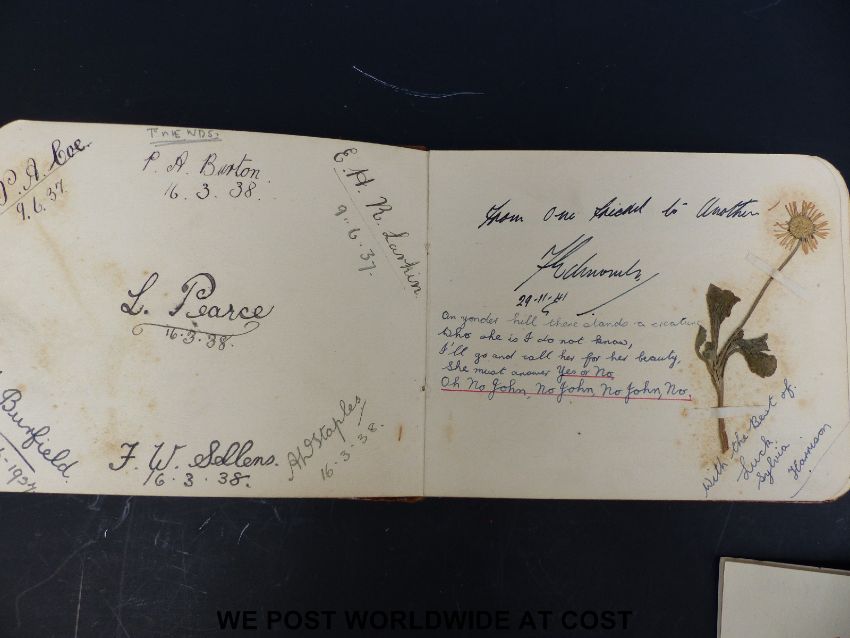 FRIENDS.
P. A. Coe.
9.6.37.
P. A. Burton.
16.3.38.
E. H. R. Larkin
9.6.37.
L. Pearce
16.3.38.
Burfield.
-1937
F. W. Sellens.
16.3.38.
Staples
16.3.38.
From One Friend to Another
Edmonds
29-11-41
On yonder hill there stands a creature
Who she is I do not know,
I'll go and call her for her beauty.
She must answer Yes or No,
Oh No John, No John, No John, No.
With the Best of
Luck.
Sylvia
Harrison
WE POST WORLDWIDE AT COST